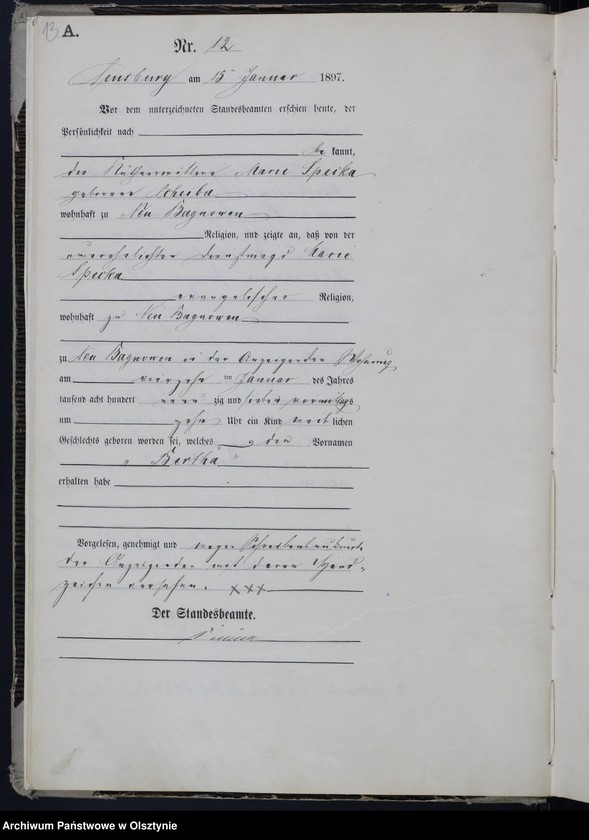 13 A.
Nr. 12
Sensburg am 15 Januar 1897.
Vor dem unterzeichneten Standesbeamten erschien heute, der
Persönlichkeit nach
be kannt,
die Käthnerwittwe Marie Speika
geborene
wohnhaft zu Neu Bagnowen
Religion, und zeigte an, daß von der
unverehelichten Dienstmagd Marie
Speika
evangelischer Religion,
wohnhaft zu Neu Bagnowen
zu Neu Bagnowen in der Anzeigenden Wohnung
am vierzehn ten Januar des Jahres
tausend acht hundert neun zig und sieben vormittags
um zehn Uhr ein Kind weib lichen
Geschlechts geboren worden sei, welches den Vornamen
" Bertha "
erhalten habe
Vorgelesen, genehmigt und wegen Schreibensunkunde
der Anzeigenden mit deren Hand-
zeichen versehen. XXX
Der Standesbeamte.
Archiwum Państwowe w Olsztynie